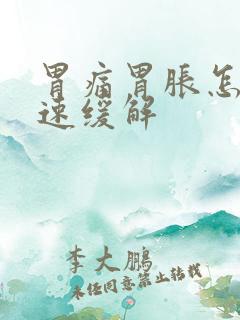 胃痛胃胀怎
速缓解
李大鹏
未经同意禁止转载